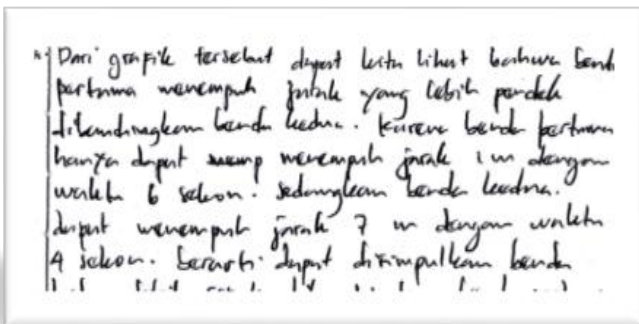 Dari grafik tersebut dapat kita lihat bahwa benda
pertama menempuh jarak yang lebih pendek
dibandingkan benda kedua. Karena benda pertama
hanya dapat menempuh jarak 1 m dengan
waktu 6 sekon. Sedangkan benda kedua.
dapat menempuh jarak 7 m dengan waktu
4 sekon. berarti dapat disimpulkan benda